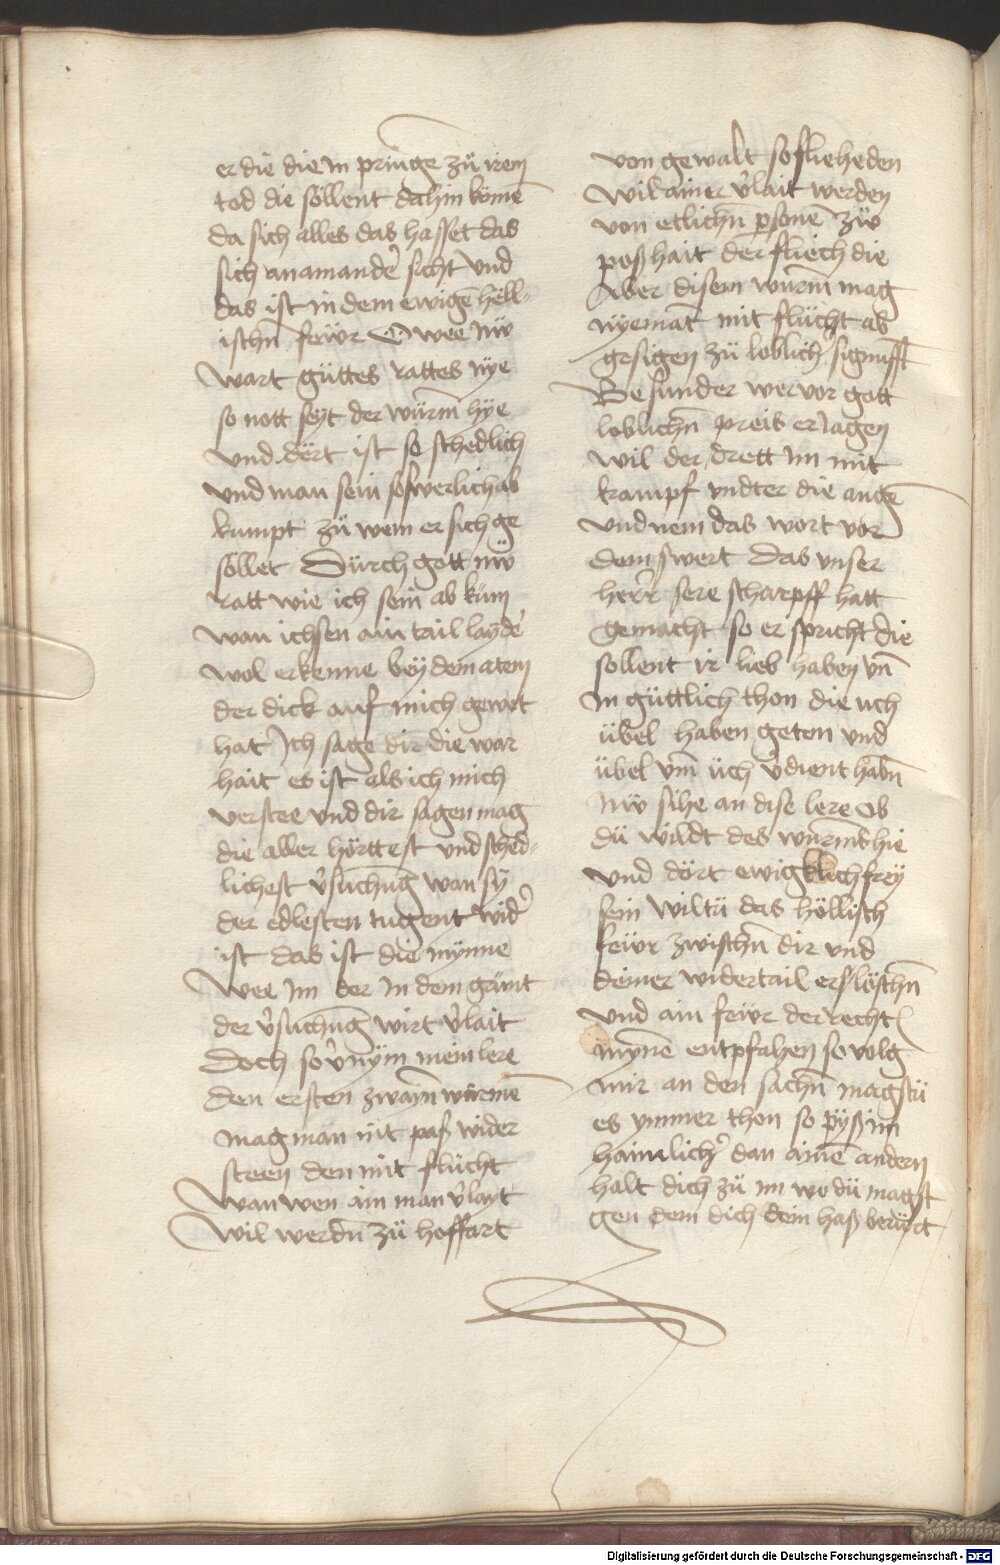 er die die in pringe zů irem
tod die söllent dahin komē
da sich alles das hasset das
sich anamandẻ sicht vnd
das ist in dem ewigē höll-
ischn̄ feẅr O wee nw̋
wart güttes rattes nÿe
so nott seyt der würm̄ hÿe
vnd dört ist so schedlich
vnd man sein so swerlich ab
kumpt zü wem er sich ge
söllet Durch gott nw̋
ratt wie ich sein ab küm
wan ich sen ain tail layde
wol erkenne bey dem atem
der dick auf mich gewet
hat Ich sage dir die war
hait es ist als ich mich
verstee vnd dir sagen mag
die aller hörttest vnd sched-
lichest v̉sůchung wan sÿ
der edlesten tugent wid̉
ist das ist die mynne
Wee im der in dem grünt
der v̉sůchung wirt v̉lait
Doch so v̉nÿm mein lere
den ersten zwaÿn würmē
mag man nit paß wider
steen den mit flücht
Wan wen ain man v̉layt
wil werdn̄ zü hoffart
von gewalt so fliehe den
Wil ainer v̉lait werden
von etlichn̄ ꝑsonē zw̋
poßhait der fliech die
Aber disem wurm̄ mag
nÿemāt mit flücht ab
gesigen zü loblich̉ signüfft
Besünder wer vor gott
loblichn̄ preis erJagen
wil der drett im mit
krampf vndter die augē
vnd nem das wort vor
dem swert Das vnser
herr̉ sere scharpff hatt
gemacht so er spricht die
sollent ir lieb haben vn̄
in güttlich thon die uch
übel haben geton vnd
übel vm̄ üch v̉dient habn̄
Nw̋ sihe an dise lere ob
dü wildt des wurms hie
vnd dört ewigklich frey
sein wiltü das höllisch
feẅr zwischn̄ dir vnd
deiner widertail erslöschn̄
vnd ain feẅr der recht
mynē entpfahen so volg
mir an den sachn̄ magstü
es ymmer thon so pÿß im
haimlich̉ dan ainē andern
halt dich zü im wo dü magst
gen dem dich dein haß berürt
Digitalisierung gefördert durch die Deutsche Forschungsgemeinschaft - DFG